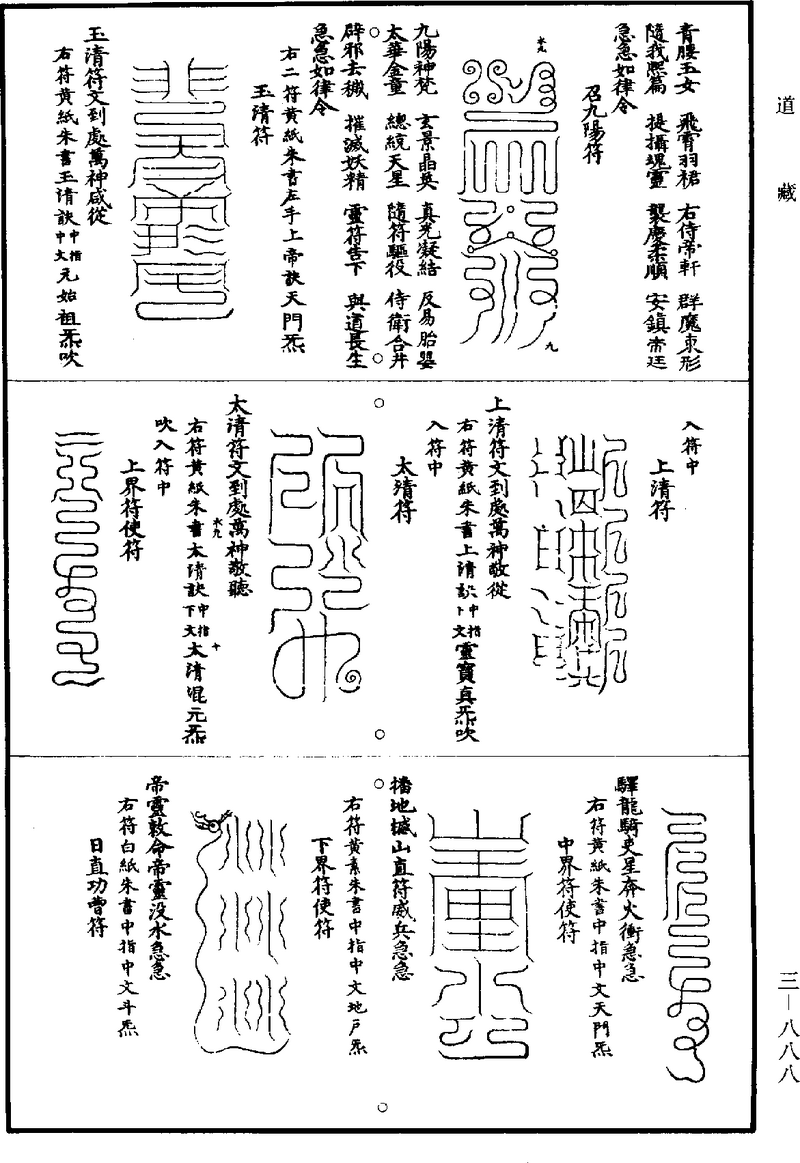 道藏
青腰玉女 飛霄羽裙 右侍帝軒 群魔束形
隨我 篇 提攝魂靈 柔順 安鎮帝廷
急急如律令
召九陽符
水九
九
九陽神梵 玄景晶英 真光凝結 反易胎嬰
太華金童 總統天星 隨符驅役 侍衛合并
辟邪去穢 摧滅妖精 靈符告下 與道長生
急急如律令
右二符黃紙朱書左手上帝訣天門炁
玉清符
玉清符文到處萬神咸從
右符黃紙朱書玉清訣中指中文元始祖炁吹
入符中
上清符
上清符文到處萬神敬從
右符黃紙朱書上清訣中指上文靈寶真炁吹
入符中
太清符
太清符文到處萬神敬聽
水九
右符黃紙朱書太清訣中指下文太清混元炁
十
吹入符中
上界符使符
驛龍騎吏星奔火衝急急
右符黃紙朱書中指中文天門炁
中界符使符
播地撼山直符威兵急急
右符黃素朱書中指中文地戶炁
下界符使符
帝靈敕命帝靈沒水急急
右符白紙朱書中指中文斗炁
日直功曹符
三-八八八